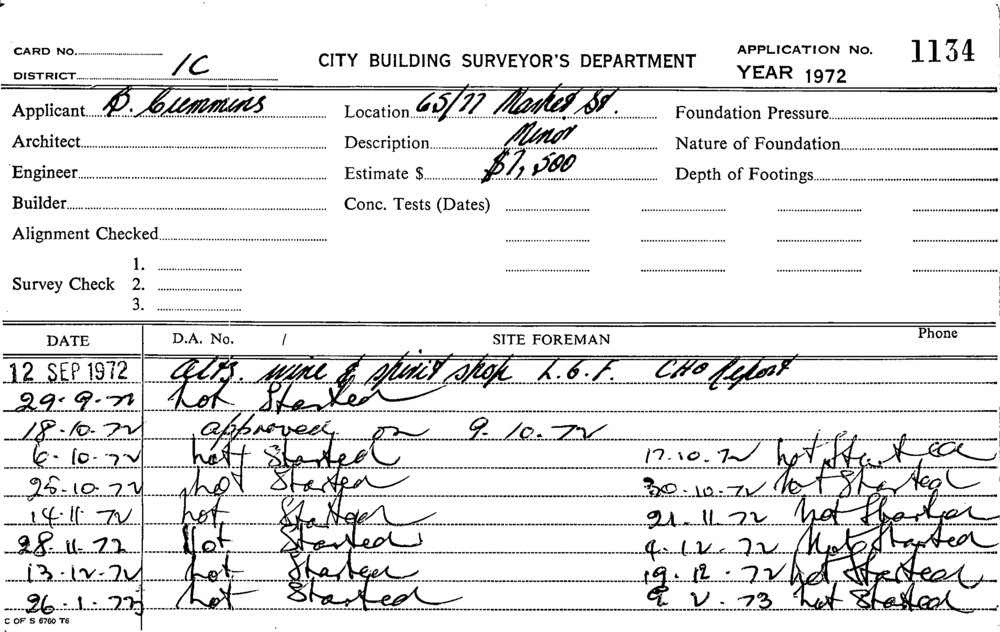 CARD No. APPLICATION No. 1134
DISTRICT 1C CITY BUILDING SURVEYOR'S DEPARTMENT YEAR 1972
Applicant B. Cummins Location 65/77 Market St. Foundation Pressure
Architect Description Minor Nature of Foundation
Engineer Estimate $ $7,500 Depth of Footings
Builder Conc. Tests (Dates)
Alignment Checked
1.
Survey Check 2.
3.
DATE D.A. No. / SITE FOREMAN Phone
12 SEP 1972 alts. wine & spirit shop L.G.F. CHO Report
29-9-72 not Started
18-10-72 approved on 9-10-72
6-10-72 not Started 17.10.72 not Started
25-10-72 not Started 30-10-72 not Started
14-11-72 not Started 21.11.72 not Started
28.11.72 Not Started 4.12.72 Not Started
13-12-72 not Started 19.12.72 not Started
26-1-73 not Started 9 2.73 not Started
C OF S 6760 T6